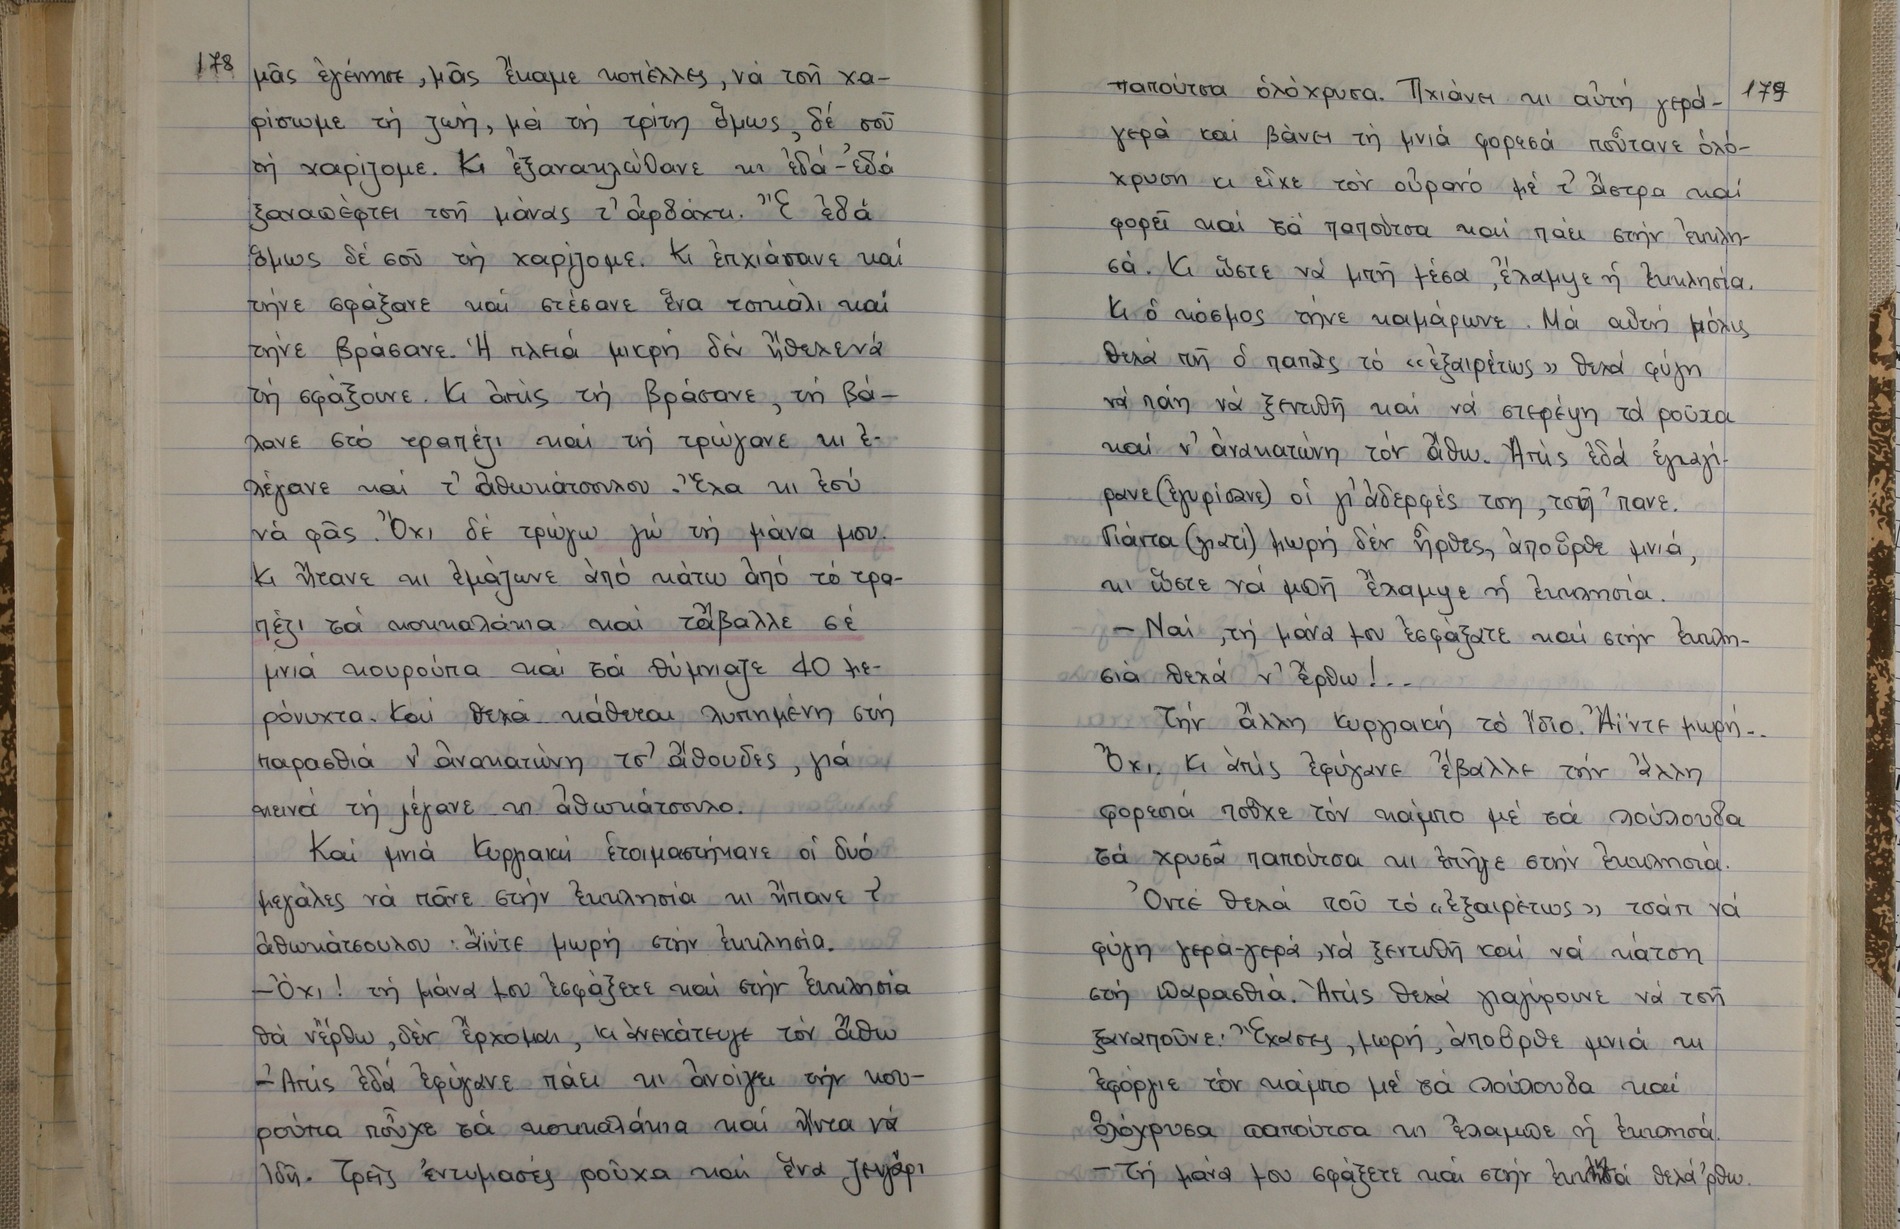 178
μᾶς ἐγέννησε, μᾶς ἔκαμε κοπέλλες, νά τσῆ χα-
ρίσωμε τή ζωή, μά τή τρίτη ὅμως, δέ σοῦ
τή χαρίζομε. Κι ἐξανακλώθανε κι ἐδά-ἐδά
ξαναπέφτει τσῆ μάνας τ' ἀρδάχτι. Ἔ ἐδά
ὅμως δέ σοῦ τή χαρίζομε. Κι ἐπχιάσανε καί
τήνε σφάξανε καί στέσανε ἕνα τσικάλι καί
τήνε βράσανε. Ἡ πλειά μικρή δέν ἤθελενά
τή σφάξουνε. Κι ἀπῆς τή βράσανε, τή βά-
λανε στό τραπέζι καί τή τρώγανε κι ἐ-
λέγανε καί τ' ἀθωκάτσουλου. Ἔλα κι ἐσύ
νά φᾶς. Ὄχι δέ τρώγω γώ τή μάνα μου.
Κι ἤτανε κι ἐμάζωνε ἀπό κάτω ἀπό τό τρα-
πέζι τά κοκκαλάκια καί τἄβαλλε σέ
μνιά κουρούπα καί τά θύμνιαζε 40 με-
ρόνυχτα. Καί θελά κάθεται λυπημένη στή
παρασθιά ν' ἀνακατώνη τσ' ἄθουδες, γιά
κεινά τή λέγανε κι ἀθωκάτσουλο.
Καί μνιά Κυργιακή ἑτοιμαστήκανε οἱ δυό
μεγάλες νά πᾶνε στήν ἐκκλησία κι ἤπανε τ'
ἀθωκάτσουλου: ἄϊντε μωρή στήν ἐκκλησία.
-Ὄχι! τή μάνα μου ἐσφάξετε καί στήν ἐκκλησία
θά νἔρθω, δέν ἔρχομαι, κι ἀνεκάτευγε τόν ἄθω
-Ἀπῆς ἐδά ἐφύγανε πάει κι ἀνοίγει τήν κου-
ρούπα ποὖχε τά κοκκαλάκια καί ἤντα νά
ἰδῆ. Τρεῖς ἐντυμασές ροῦχα καί ἕνα ζευγάρι
179
παπούτσα ὁλόχρυσα. Πχιάνει κι αὐτή γερά-
γερά καί βάνει τή μνιά φορεσά ποὖτανε ὁλό-
χρυση κι εἶχε τόν οὐρανό μέ τ' ἄστρα καί
φορεῖ καί τά παπούτσα καί πάει στήν ἐκκλη-
σά. Κι ὥστε νά μπῆ μέσα, ἔλαμψε ἡ ἐκκλησία.
Κι ὁ κόσμος τήνε καμάρωνε. Μά αὐτή μόλις
θελά πῆ ὁ παπᾶς τό «ἐξαιρέτως» θελά φύγη
νά πάη νά ξεντυθῆ καί νά στερέψη τά ροῦχα
καί ν' ἀνακατώνη τόν ἄθω. Ἀπῆς ἐδά ἐγιαγί-
ρανε (ἐγυρίσανε) οἱ γι' ἀδερφές τση, τσῆ 'πανε.
Γιάντα (γιατί) μωρή δέν ἦρθες, ἀποὖρθε μνιά,
κι ὥστε νά μπῆ ἔλαμψε ἡ ἐκκλησία.
- Ναί, τή μάνα μου ἐσφάξατε καί στήν ἐκκλη-
σιά θελά ν' ἔρθω!..
Τήν ἄλλη Κυργιακή τό ἴδιο. Ἄϊντε μωρή..
Ὄχι. Κι ἀπῆς ἐφύγανε ἔβαλλε τήν ἄλλη
φορεσιά ποὖχε τόν κάμπο μέ τά λούλουδα
τά χρυσᾶ παπούτσα κι ἐπῆγε στήν ἐκκλησιά.
Ὀντέ θελά ποῦ τό «ἐξαιρέτως» τσάπ νά
φύγη γερά-γερά, νά ξεντυθῆ καί νά κάτση
στή παρασθιά. Ἀπῆς θελά γιαγύρουνε νά τσῆ
ξαναποῦνε: Ἔχασες, μωρή, ἀποὖρθε μνιά κι
ἐφόργιε τόν κάμπο μέ τά λούλουδα καί
ὁλόχρυσα παπούτσα κι ἔλαμπε ἡ ἐκκλησά.
- Τή μάνα μου σφάξετε καί στήν ἐκκλησά θελά 'ρθω.